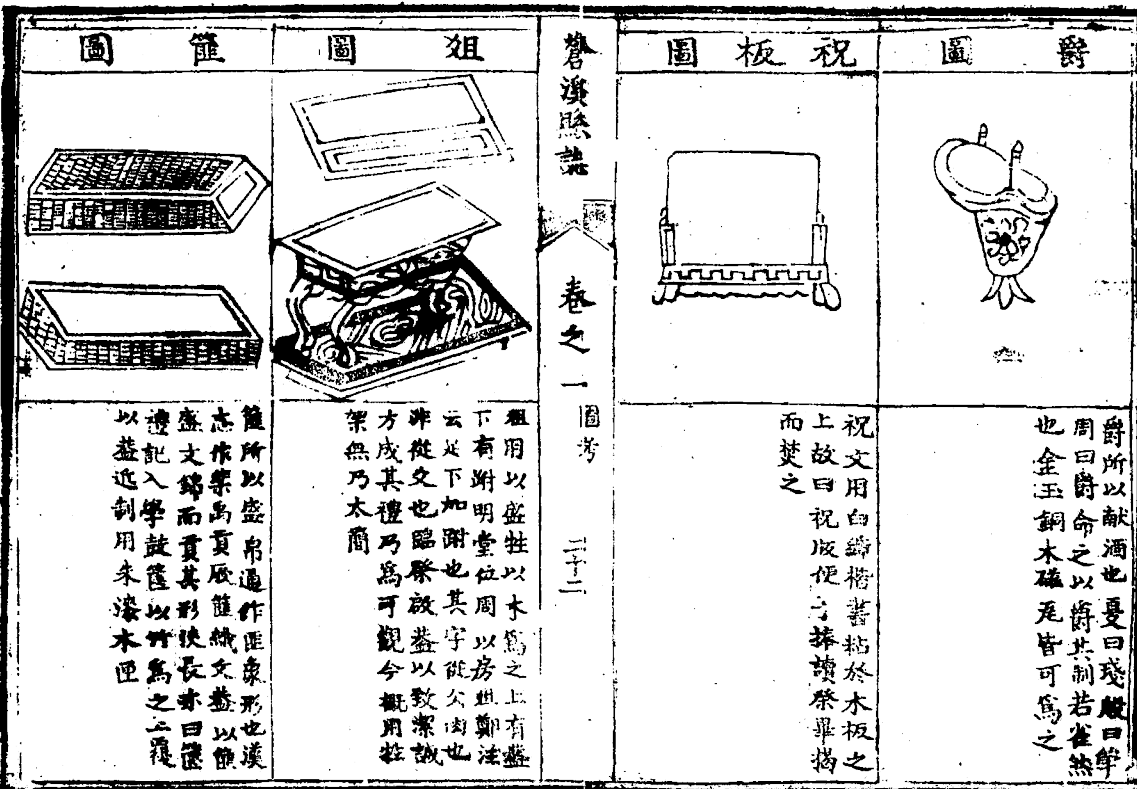 爵圖
爵所以献酒也夏曰琖殷曰斝
周曰爵命之以爵其制若雀然
也金玉銅木磁瓦皆可爲之
祝板圖
祝文用白紙楷書粘於木板之
上故曰祝版便于捧讀祭畢揭
而焚之
蒼溪縣誌
卷之一
圖考
二十二
俎圖
俎用以盛牲以木爲之上有蓋
下有跗明堂位周以房俎鄭注
云足下加跗也其字從仌肉也
非從文也臨祭啟蓋以致潔誠
方成其禮乃爲可觀今概用牲
架無乃太簡
篚圖
篚所以盛帛通作匪象形也漢
志作棐禹貢厥篚織文蓋以篚
盛文錦而貢其形狹長亦曰篋
禮記入學鼓篋以竹爲之上覆
以蓋近制用朱漆木匣